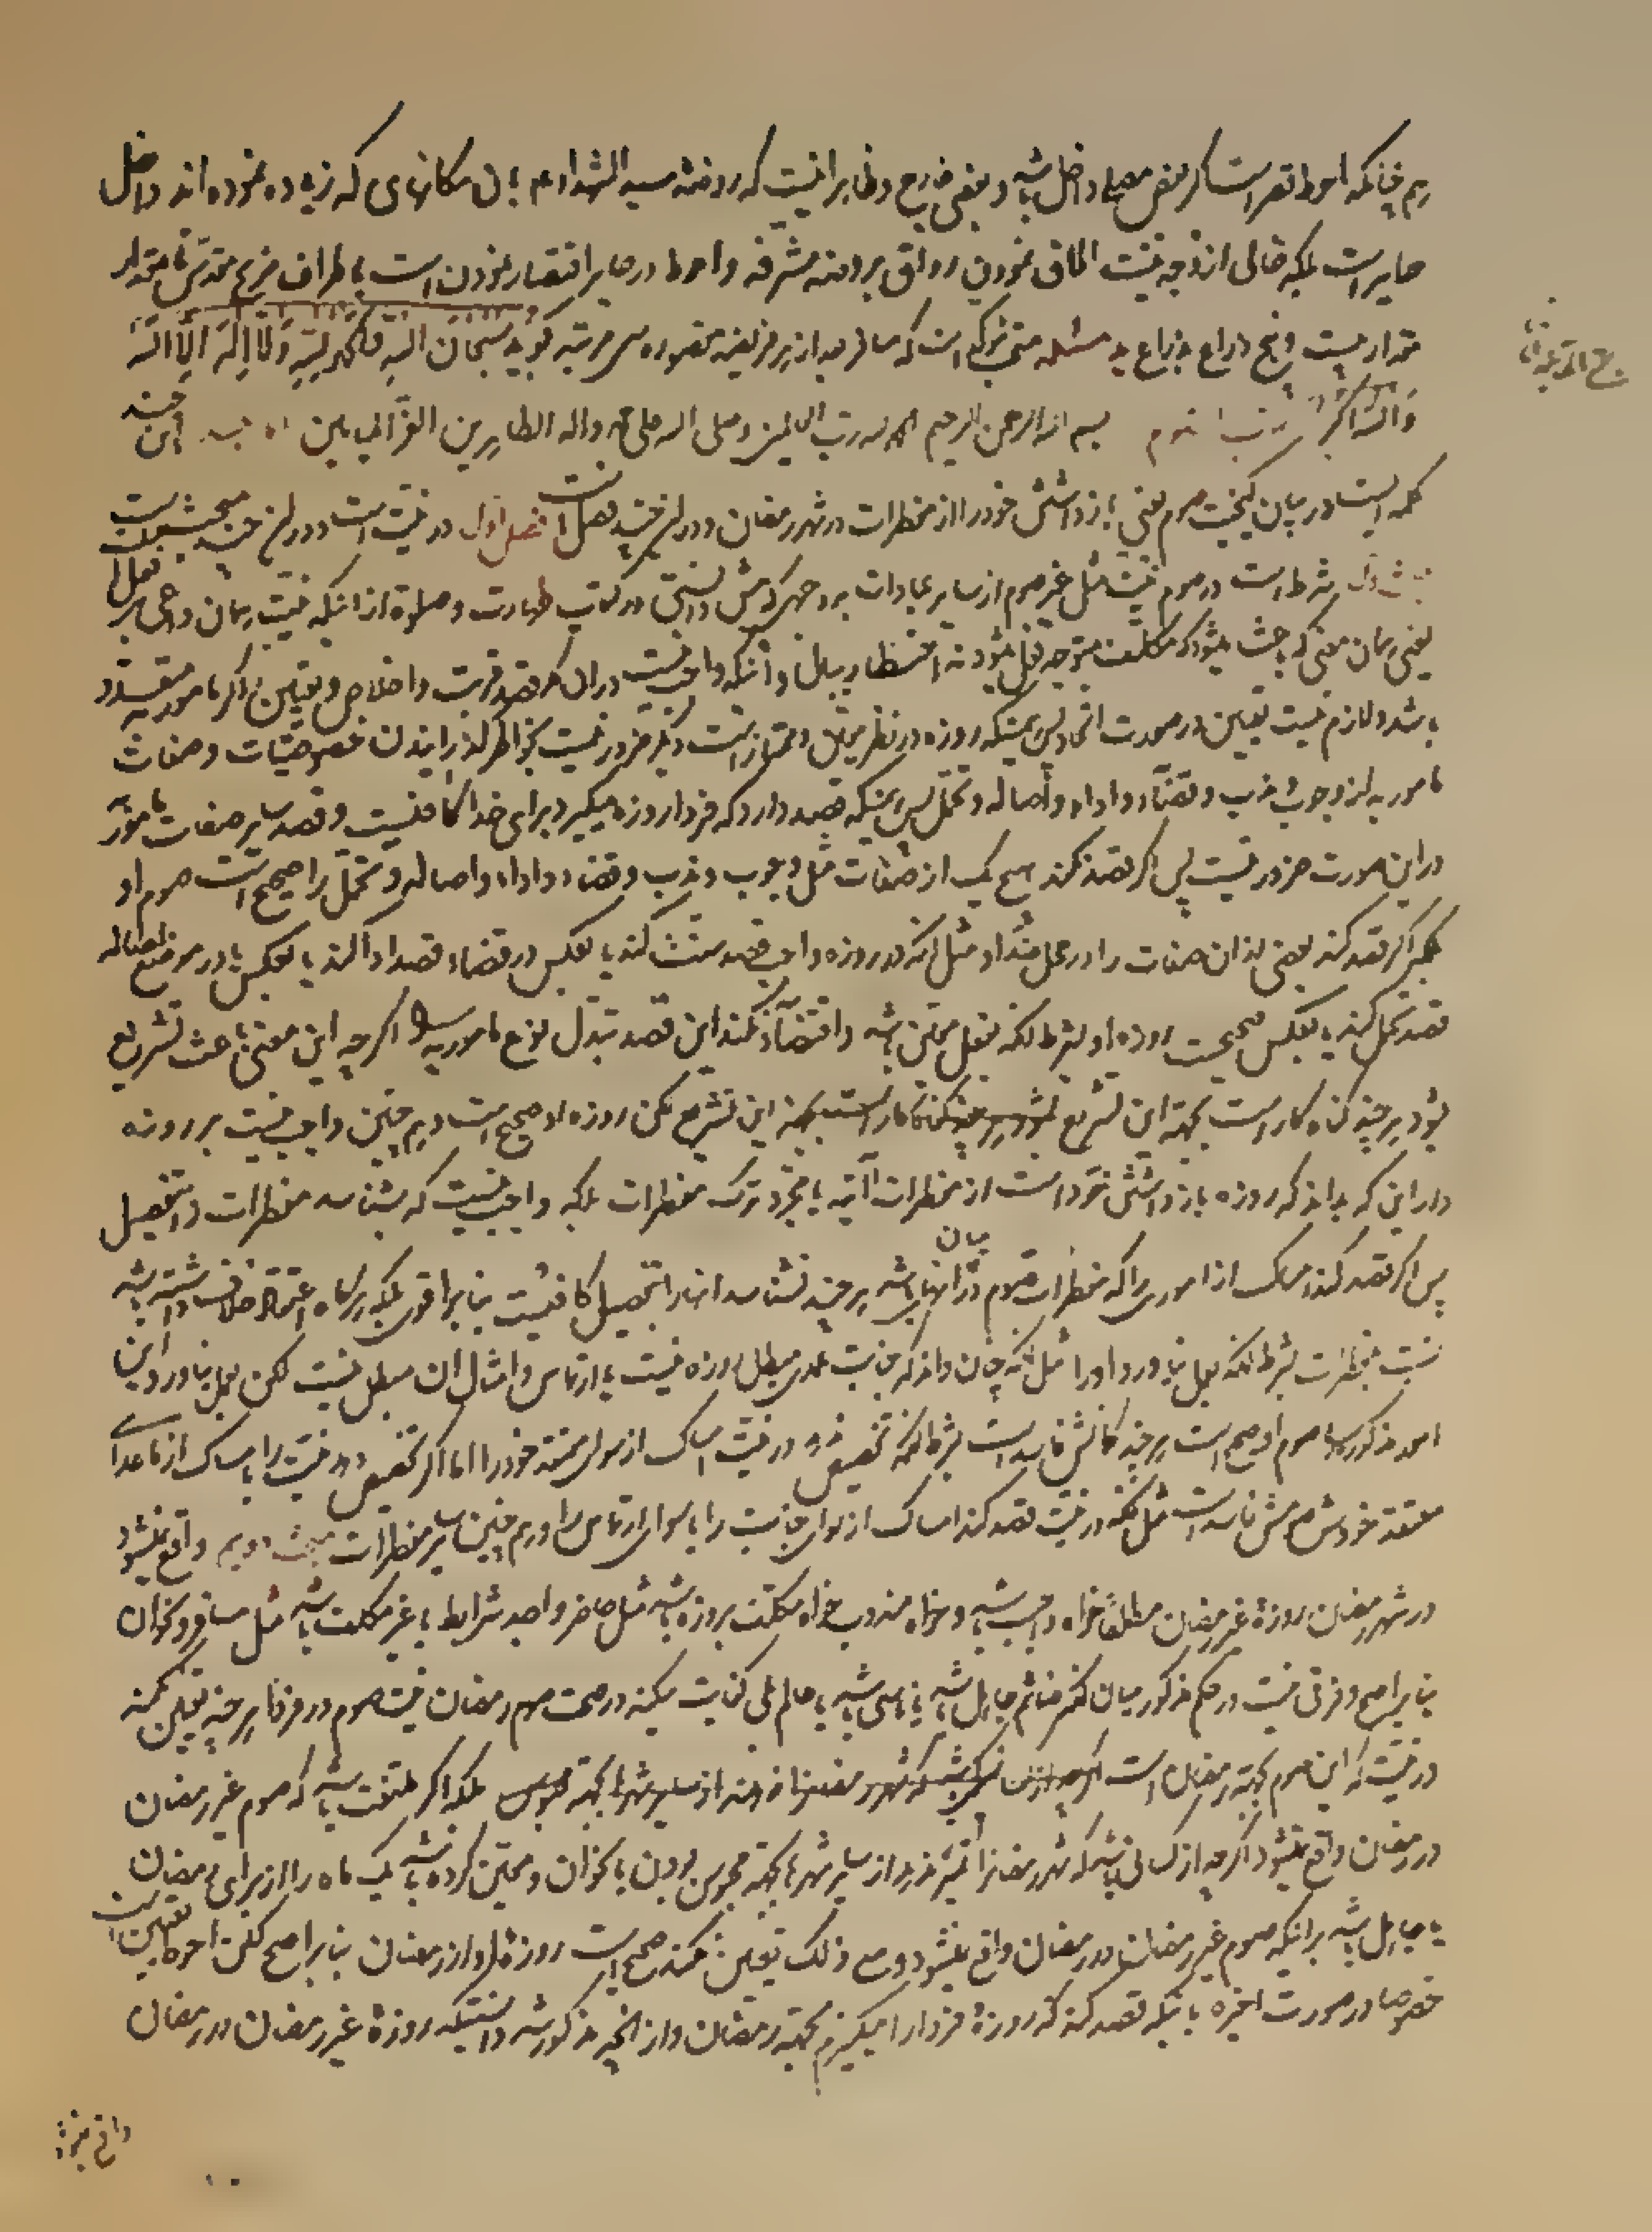 هم چنانکه احوط قصر است اگر بعض مصلی داخل باشد و بعضی خارج و ظاهرا نیست که روضه سید الشهداء ع بان مکانهای که زیاده نموده اند داخل
حایر است بلکه خالی از وجه نیست الحاق نمودن رواق بروضه مشرفه و احوط در حایر اقتصار نمودن است باطراف ضریح مقدس تا مقدار
مقدار بیست و پنج ذراع بذراع ید مسئله مستحب است که مسافر بعد از هر فریضه مقصوره سی مرتبه بگوید سبحان الله والحمد لله ولا اله الا الله
والله اکبر کتاب الصوم بسم الله الرحمن الرحیم الحمد لله رب العالمین وصلی الله علی محمد واله الطاهرین الغر المیامین اما بعد این چند
کلمه ایست در بیان کیفیت صوم یعنی بازداشتن خود را از مفطرات در شهر رمضان و در ان چند فصل است فصل اول در نیت است و در ان چند مبحث است
مبحث اول شرط است در صوم نیت مثل غیر صوم از سایر عبادات بر وجهی که پیش دانستی در کتاب طهارت و صلوة از اینکه نیت همان داعی بر فعل
یعنی همان معنی که باعث میشود که مکلف متوجه فعل شود نه اخطار ببال و اینکه واجب نیست در ان مگر قصد قربت و اخلاص و تعیین اگر مامور به متعدد
باشد و لازم نیست تعیین در صورت اتحاد پس همینکه روزه در نظر معین و ممتاز است دیگر ضرور نیست بخاطر گذرانیدن خصوصیات و صفات
مامور به از وجوب و ندب و قضاء و اداء و اصاله و تحمل پس همینکه قصد دارد که فردا روزه میگیرد برای خدا کافیست و قصد سایر صفات مامور به
در این صورت ضرور نیست پس اگر قصد نکند هیچ یک از صفات مثل وجوب و ندب و قضاء و اداء و اصاله و تحمل را صحیح است صوم او
بلکه اگر قصد کند بعضی از ان صفات را در محل ضد او مثل انکه در روزه واجب قصد سنت کند یا بعکس در قضاء قصد اداء کند یا بعکس یا در موضع اصاله
قصد تحمل کند یا بعکس صحیحست روزه او بشرط انکه بفعل معین باشد و اقتضا نکند این قصد تبدل نوع مامور به را اگر چه این معنی باعث تشریع
شود هر چند گناه کار است بجهة این تشریع لکن روزه او صحیح است و هم چنین واجب نیست بر روزه
دار این که بداند که روزه بازداشتن خود است از مفطرات آتیه یا مجرد ترک مفطرات بلکه واجب نیست که بشناسد مفطرات را بتفصیل
پس اگر قصد کند امساک از اموری را که مفطرات صوم در میان انها باشد هر چند نشناسد انها را بتفصیل کافیست بنا بر اقوی بلکه هر گاه اعتقاد خلاف داشته باشد
نسبت بمفطرات بشرط انکه بعمل نیاورد او را مثل انکه چنان داند که جنابت عمدی مبطل روزه نیست یا ارتماس و امثال ان مبطل نیست لکن بعمل نیاورد این
امور مذکوره را صوم او صحیح است هر چند گمانش فاسد است بشرط انکه تخصیص ندهد در نیت امساک از سوای معتقد خود را اما اگر تخصیص دهد نیت را بامساک از ما عدای
معتقد خودش صومش فاسد است مثل انکه در نیت قصد کند امساک از سوای جنابت را یا سوای ارتماس را و هم چنین سایر مفطرات مبحث دویم واقع نمیشود
در شهر رمضان روزهٔ غیر رمضان مطلقا خواه واجب باشد و خواه مندوب خواه مکلف بروزه باشد مثل حاضر واجد شرایط یا غیر مکلف باشد مثل مسافر و نحو ان
بنا بر اصح و فرقی نیست در حکم مذکور میان انکه جاهل باشد یا ناسی باشد یا عالم بلی کفایت میکند در صحت صوم رمضان نیت صوم در فردا هر چند تعیین نکند
در نیت که این صوم بجهة رمضان است بلکه اگر ملتفت باشد که صوم غیر رمضان
در رمضان واقع نمیشود اگر چه از کسانی باشد که شهر رمضانرا تمییز ندهد از سایر شهرها بجهة محبوس بودن یا نحو ان و معین کرده باشد یک ماه را از برای رمضان
یا جاهل باشد بر اینکه صوم غیر رمضان در رمضان واقع نمیشود و مع ذلک تعیین نکند صحیح است روزه او از رمضان بنا بر اصح لکن احوط تعیین است
خصوصا در صورت اخیره باینکه قصد کند که روزهٔ فردا را میگیرم بجهة رمضان و از انچه مذکور شد دانستیکه روزهٔ غیر رمضان در رمضان
واقع نمیشود